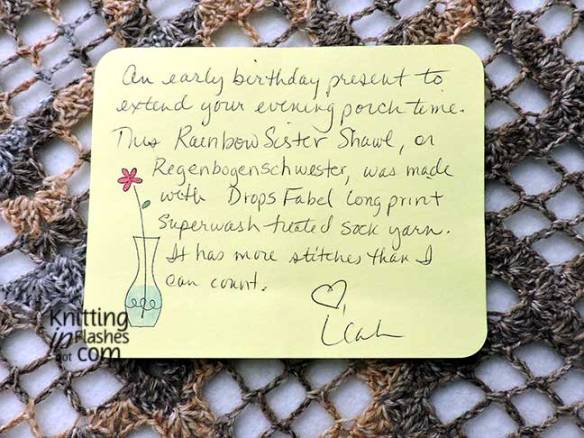 An early birthday present to
extend your evening porch time.
This Rainbow Sister Shawl, or
Regenbogenschwester, was made
with Drops Fabel long print
Superwash-treated sock yarn.
It has more stitches than I
can count.
♡,
Leah
Knitting
in Flashes
dot com